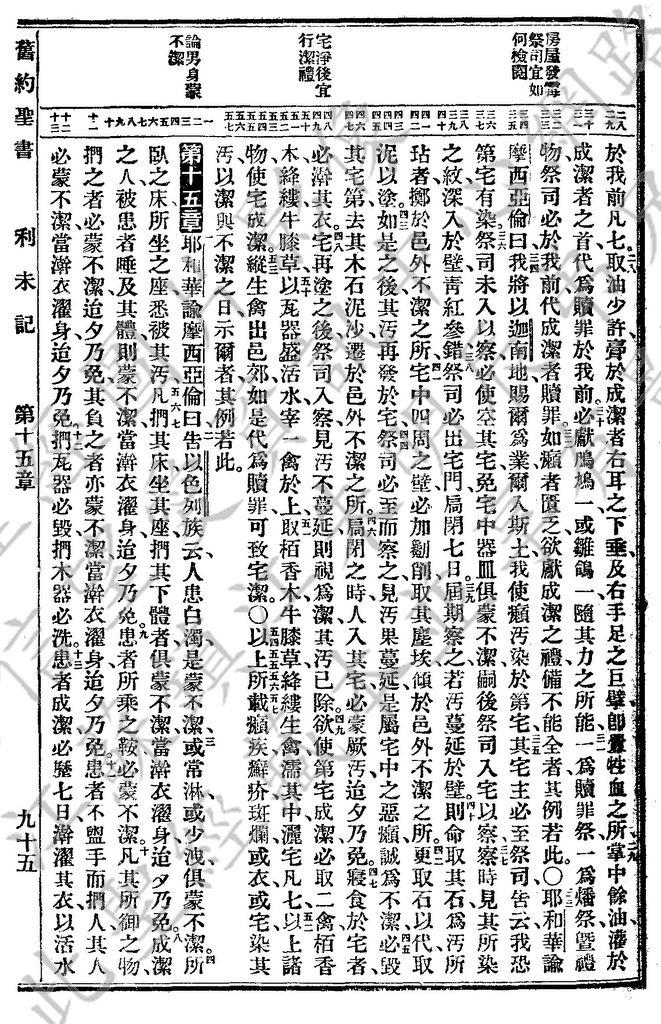 舊約聖書
利未記
第十五章
九十五
房屋發霉祭司宜如何檢閱
宅淨後宜行潔禮
論男身蒙不潔
於我前凡七取油少許膏於成潔者右耳之下垂及右手足之巨擘卽釁牲血之所掌中餘油灌於
成潔者之首代爲贖罪於我前必獻鳲鳩一或雛鴿一隨其力之所能一爲贖罪祭一爲燔祭曁禮
物祭司必於我前代成潔者贖罪如癩者匱乏欲獻成潔之禮備不能全者其例若此〇耶和華諭
摩西亞倫曰我將以迦南地賜爾爲業爾入斯土我使癩污染於第宅其宅主必至祭司吿云我恐
第宅有染祭司未入以察必使空其宅免宅中器皿俱蒙不潔嗣後祭司入宅以察察時見其所染
之紋深入於壁青紅參錯祭司必出宅門扃閉七日屆期察之若污蔓延於壁則命取其石爲污所
玷者擲於邑外不潔之所宅中四周之壁必加劙削取其塵埃傾於邑外不潔之所更取石以代取
泥以塗如是之後其污再發於宅祭司必至而察之見污果蔓延是屬宅中之惡癩誠爲不潔必毀
其宅第去其木石泥沙遷於邑外不潔之所扃閉之時人入其宅必蒙厥污迨夕乃免寢食於宅者
必澣其衣宅再塗之後祭司入察見污不蔓延則視爲潔其污已除欲使第宅成潔必取二禽栢香
木絳縷牛膝草以瓦器盛活水宰一禽於上取栢香木牛膝草絳縷生禽濡其中灑宅凡七以上諸
物使宅成潔縱生禽出邑郊如是代爲贖罪可致宅潔〇以上所載癩疾癬疥斑爛或衣或宅染其
污以潔與不潔之日示爾者其例若此
第十五章 耶和華諭摩西亞倫曰吿以色列族云人患白濁是蒙不潔或常淋或少洩俱蒙不潔所
臥之床所坐之座悉被其污凡捫其床坐其座捫其下體者俱蒙不潔當澣衣濯身迨夕乃免成潔
之人被患者唾及其體則蒙不潔當澣衣濯身迨夕乃免患者所乘之鞍必蒙不潔凡其所御之物
捫之者必蒙不潔迨夕乃免其負之者亦蒙不潔當澣衣濯身迨夕乃免患者不盥手而捫人其人
必蒙不潔當澣衣濯身迨夕乃免捫瓦器必毀捫木器必洗患者成潔必歷七日澣濯其衣以活水